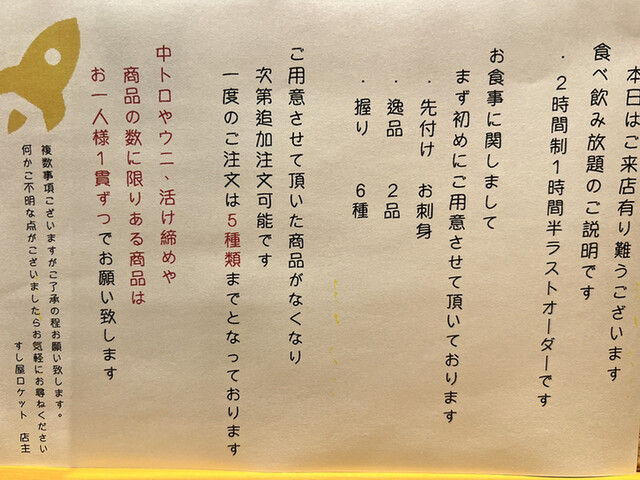 本日はご来店有り難うございます
食べ飲み放題のご説明です
・２時間制１時間半ラストオーダーです
お食事に関しまして
まず初めにご用意させて頂いております
・先付け　お刺身
・逸品　２品
・握り　６種
ご用意させて頂いた商品がなくなり
次第追加注文可能です
一度のご注文は５種類までとなっております
中トロやウニ、活け締めや
商品の数に限りある商品は
お一人様１貫ずつでお願い致します
複数事項ございますがご了承の程お願い致します。
何かご不明な点がございましたらお気軽にお尋ねください
すし屋ロケット　店主